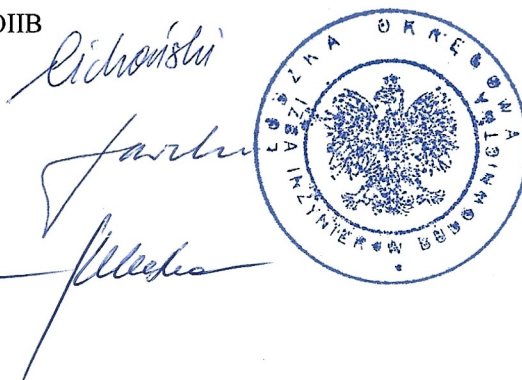 OIIB
Cichoński
ŁÓDZKA OKRĘGOWA
IZBA INŻYNIERÓW BUDOWNICTWA